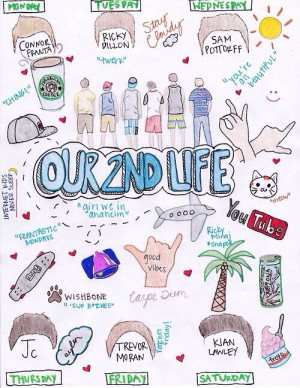 MONDAY
TUESDAY
WEDNESDAY
CONNOR
FRANTA
RICKY
DILLON
Stay
Cloudy
SAM
POTTORFF
"twerk"
"you're
all
beautiful"
"THING!"
OUR 2ND LIFE
INTERNET KIDS
NEVER SLEEP
"meow"
"girl we in
anaheim"
You Tube
"FRANTASTIC"
MONDAYS
good
vibes
Ricky
Minaj
*snaps*
WISHBONE
Carpe Diem
Jc
TREVOR
MORAN
KIAN
LAWLEY
THURSDAY
FRIDAY
SATURDAY